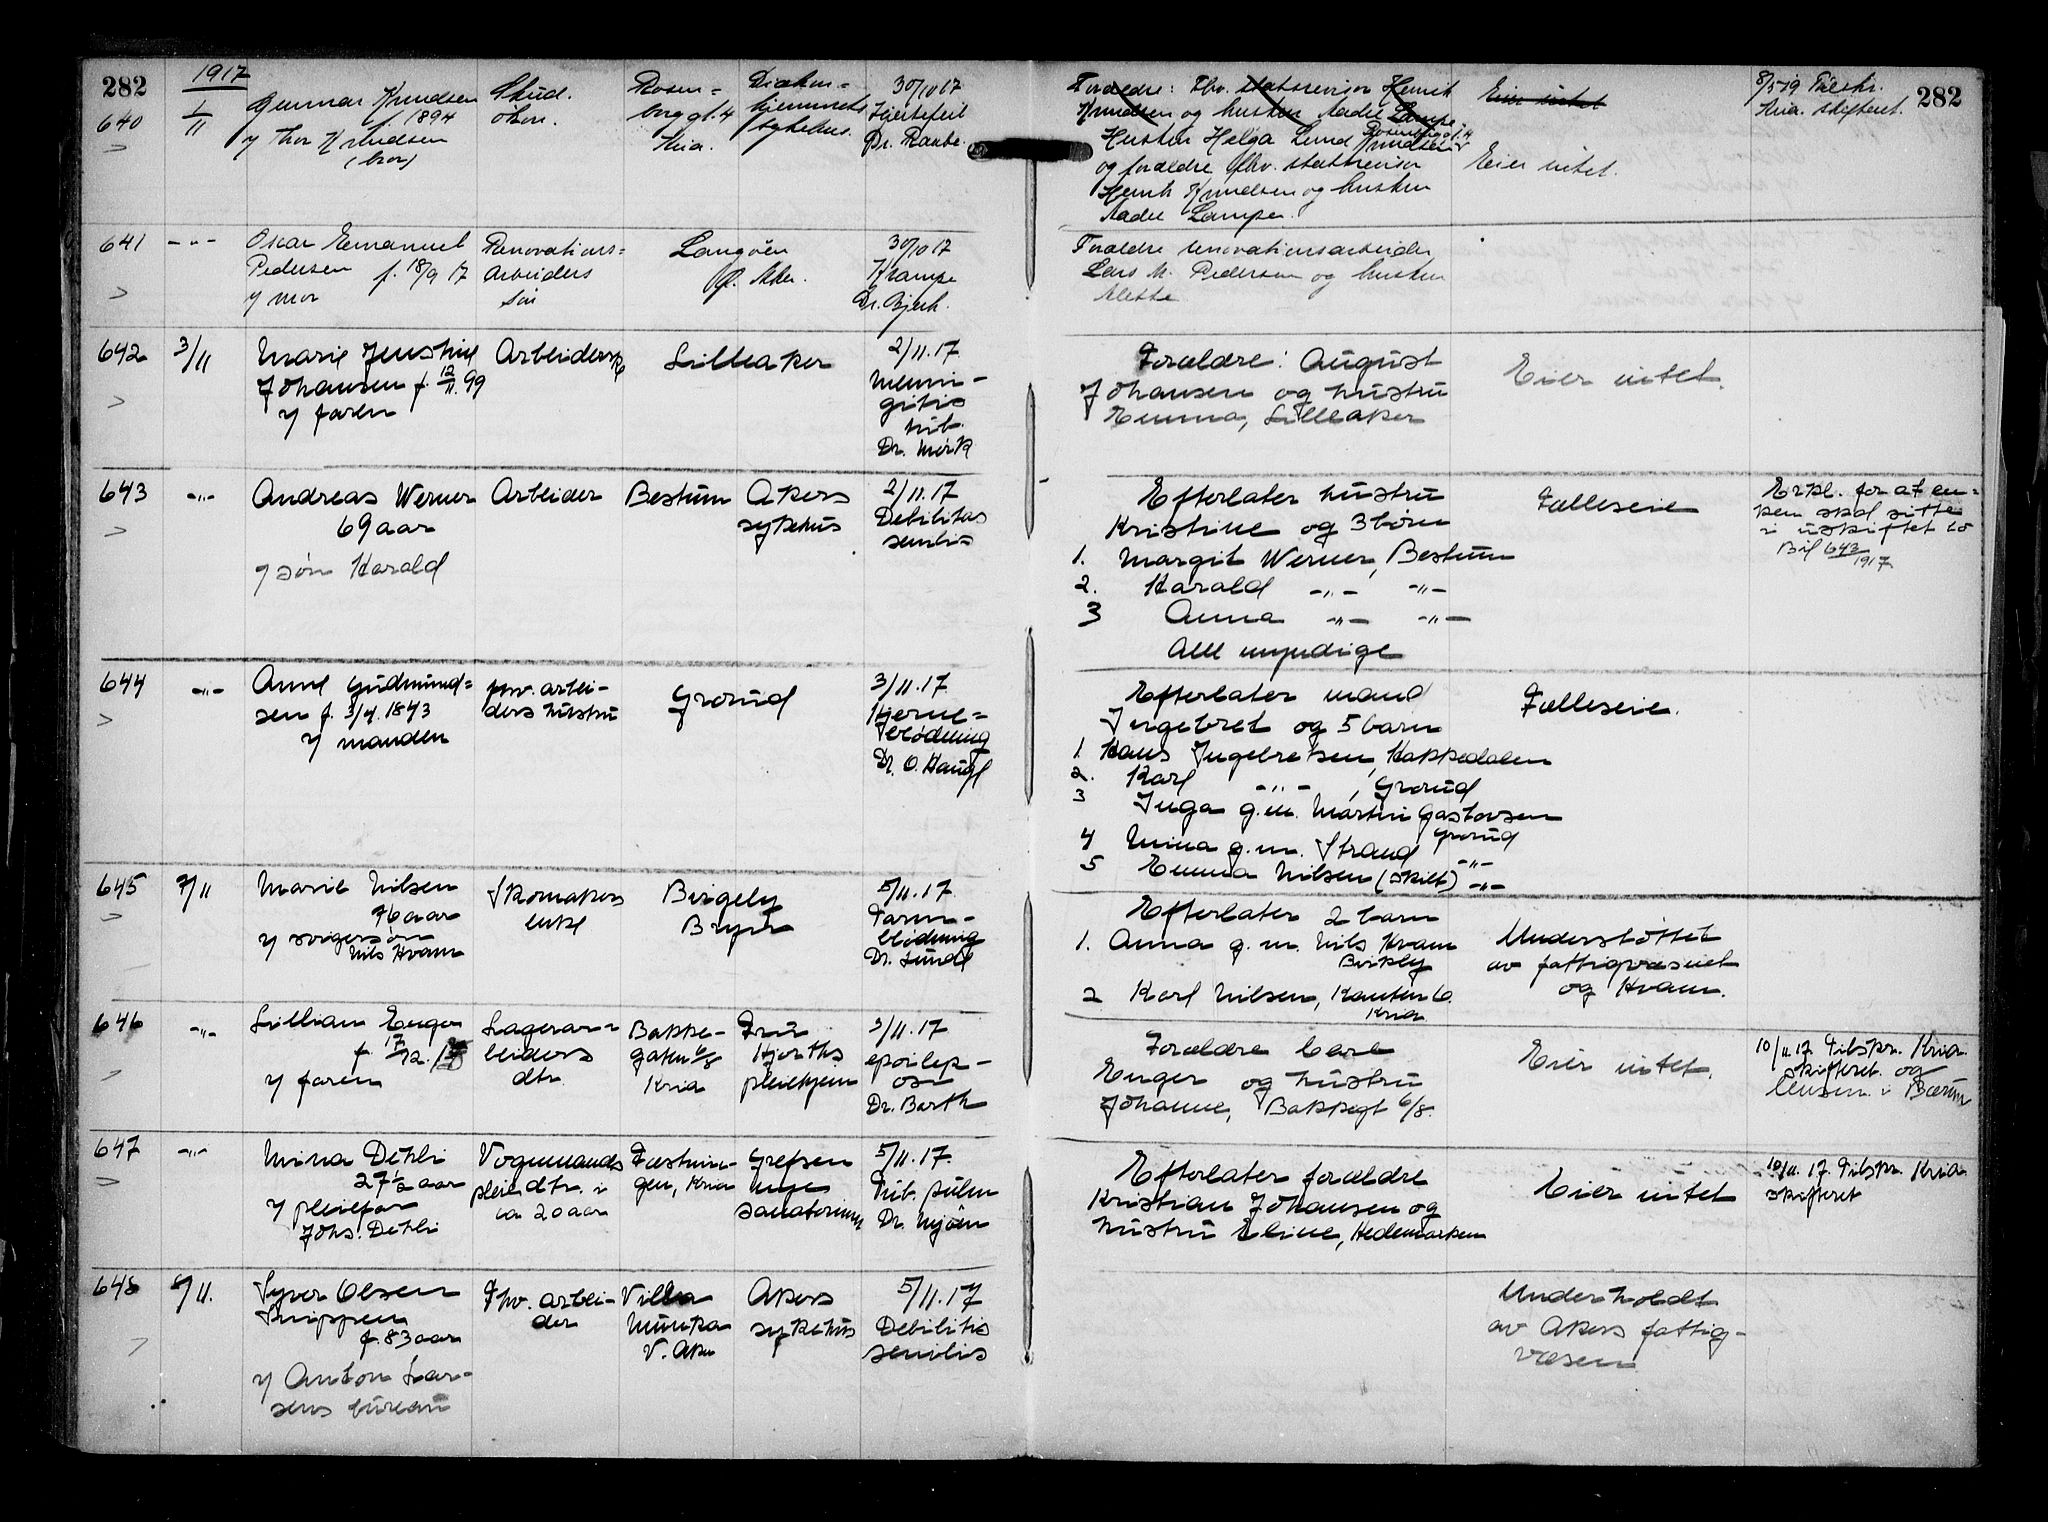 282
1917
640
1/11
Gunnar Knudsen
f. 1894
v/ Thor Knudsen
(bror)
Stud.
økon.
Rosen-
borg gt. 4
Kria.
Diakon-
hjemmets
sykehus
30/10 17
Hjertefeil
Dr. Raabe.
641
-"-
Oskar Emanuel
Pedersen f. 18/9 17
v/ mor
Renovations-
arbeiders
søn
Langøen
Ø. Aker.
30/10 17
Krampe
Dr. Bjerk.
642
3/11
Marie Jenshil
Johansen f. 12/11.99
v/ faren
Arbeidersk
Lilleaker
2/11.17
Menin-
gitis
tub.
Dr. Mørk
643
-"-
Andreas Werner
69 aar
v/ søn Harald
Arbeider
Bestum
Akers
sykehus
2/11.17
Debilitas
senilis
644
-"-
Anne Gudmund-
sen f. 3/4. 1843
v/ manden
fhv. arbei-
ders hustru
Grorud
3/11.17
Hjerne-
blødning
Dr. O. Haugl
645
7/11
Marie Nilsen
76 aar
v/ svigersøn
Nils Kvam
Skomakers
enke
Birgely
Bryn
5/11.17
Tarm-
blødning
Dr. Lunde
646
-"-
Lillian Enger
f. 17/12.
v/ faren
Lagerar-
beiders
dtr.
Bakke-
gaten 6/8
Kria
Fru
Hjorths
pleiehjem
3/11.17
epilep-
osi
Dr. Barth
647
-"-
Mina Dehli
27½ aar
v/ pleiefar
Johs. Dehli
Vognmands
pleiedtr. i
ca 20 aar
Fæstnin-
gen, Kria
Grefsen
nye
sanatorium
5/11.17.
Tub. pulm
Dr. Mjøen
648
8/11.
Syver Olsen
Snippen
f. 83 aar
v/ Anton Lar-
sens bureau
Fhv. arbei-
der
Villa
Munka
V. Aker
Akers
sykehus
5/11.17
Debilitis
senilis
282
Forældre: Fhv. statsrevisor Henrik
Knudsen og hustru Aadel Lampe
Hustru Helga Lund Knudsen Rosenborggt. 4
og forældre fhv. statsrevisor
Henrik Knudsen og hustru
Aadel Lampe.
Eier intet
Eier intet.
8/5 19 Tilskr.
Kria. skifteret.
Forældre renovationsarbeider
Lars M. Pedersen og hustru
Alette
Forældre: August
Johansen og hustru
Emma, Lilleaker
Eier intet.
Efterlater hustru
Kristine og 3 børn
1. Margit Werner, Bestum
2. Harald -"- -"-
3 Anna -"- -"-
Alle umyndige
Fælleseie
Erkl. for at en-
ken skal sitte
i uskiftet bo
Bil 643/1917
Efterlater mand
Ingebret og 5 barn
1. Hans Ingebretsen, Hakkedalen
2. Karl -"-, Grorud
3 Inga g.m. Martin Gastovsen
Grorud
4 Mina g.m. Strand -"-
5 Emma Nilsen (skilt) -"-
Fælleseie.
Efterlater 2 barn
1. Anna g.m. Nils Kvam
Birkely
2 Karl Nilsen, Kanten 6.
Kria
Understøttet
av fattigvæsnet
og Kvam.
Forældre Carl
Enger og hustru
Johanne, Bakkegt 6/8.
Eier intet.
10/11 17. Tilskr. Kria
skifteret og
lensm. i Bærum
Efterlater forældre
Kristian Johansen og
hustru Eline, Hedemarken
Eier intet
10/11. 17. Tilskr. Kria
skifteret
Underholdt
av Akers fattig-
væsen